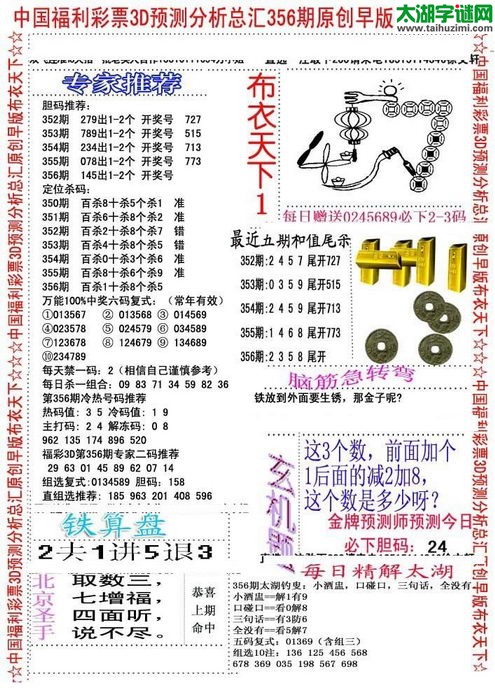 中国福利彩票3D预测分析总汇356期原创早版
太湖字谜网
www.taihuzimi.com
专家推荐
胆码推荐:
352期 279出1-2个 开奖号 727
353期 789出1-2个 开奖号 515
354期 234出1-2个 开奖号 713
355期 078出1-2个 开奖号 773
356期 145出1-2个 开奖号
定位杀码:
350期 百杀8十杀5个杀1 准
351期 百杀6十杀8个杀2 准
352期 百杀2十杀4个杀7 错
353期 百杀4十杀8个杀5 错
354期 百杀2十杀8个杀7 准
355期 百杀0十杀6个杀9 准
356期 百杀1十杀8个杀5
万能100%中奖六码复式: (常年有效)
①013567 ②013568 ③014569
④023578 ⑤024579 ⑥034589
⑦123678 ⑧124679 ⑨134689
⑩234789
每天禁一码: 2 (相信自己谨慎参考)
每日杀一组合: 09 83 71 34 59 82 36
第356期冷热号码推荐
热码值: 3 5 冷码值: 1 9
主打码: 2 4 解冻码: 0 8
962 135 174 896 520
福彩3D第356期专家二码推荐
29 63 01 45 89 62 07 14
组选复式: 0134589 胆码: 158
直组选推荐: 185 963 201 408 596
铁算盘
2去1讲5退3
北京圣手
取数三,
七增福,
四面听,
说不尽。
恭喜
上期
命中
布衣天下1
每日赠送0245689必下2-3码
最近五期和值尾杀
352期:2 4 5 7 尾开727
353期:0 3 5 9 尾开515
354期:2 4 5 9 尾开713
355期:1 4 6 8 尾开773
356期:2 3 5 8 尾开
脑筋急转弯
铁放到外面要生锈，那金子呢?
玄机题
这3个数，前面加个
1后面的减2加8，
这个数是多少呀?
金牌预测师预测今日
必下胆码: 24
每日精解太湖
356期太湖钓叟: 小酒盅, 口碰口, 三句话, 全没有
小酒盅==解1有9
口碰口==看0解8
三句话==有3防6
全没有==看5解7
五码复式: 01369 (含组三)
组选10注: 136 125 456 568
678 369 035 198 567 698
中国福利彩票3D预测分析总汇原创早版布衣天下
中国福利彩票3D预测分析总汇
原创早版布衣天下